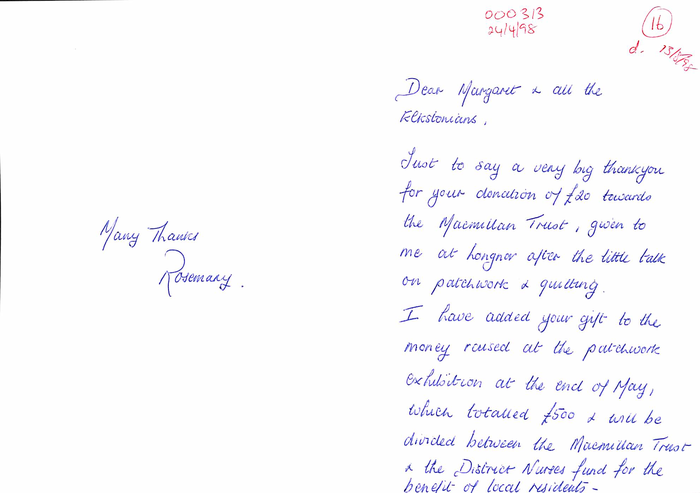 000313
24/4/98
16
d.
Dear Margaret & all the
Elkstonians,
Just to say a very big thankyou
for your donation of £20 towards
the Macmillan Trust, given to
me at hongnor after the little talk
on patchwork & quilting.
I have added your gift to the
money raised at the patchwork
exhibition at the end of May,
which totalled £500 & will be
divided between the Macmillan Trust
& the District Nurses fund for the
benefit of local residents -
Many Thanks
Rosemary.